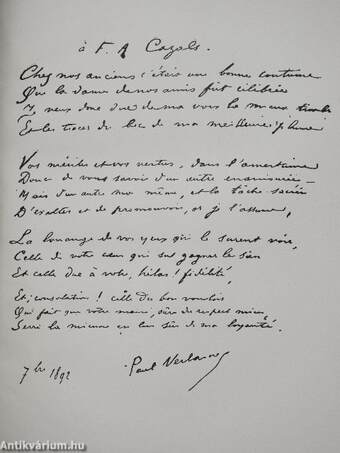 à F. A Cazals.
Chez nos anciens c'était une bonne coutume
Que la dame de nos amis fût célébrée
Or, veux donc dire de ma voix la mieux
Et les traces du bec de ma meilleure plume
Vos mérites et vos vertus, dans l'amertume
Douce de vous savoir d'un autre enamourée —
Mais d'un autre moi même, et la tâche sacrée
D'exalter et de promouvoir, or je l'assume,
La louange de vos yeux qui le surent voir,
Celle de votre cœur qui sut gagner le sien
Et celle due à votre, hélas! fidélité,
Et, consolation! celle du bon vouloir
Qui fait que votre main, sûre du respect mien,
Serre la mienne en lieu sûr de ma loyauté.
7bre 1892 Paul Verlaine
Antikvárium.hu